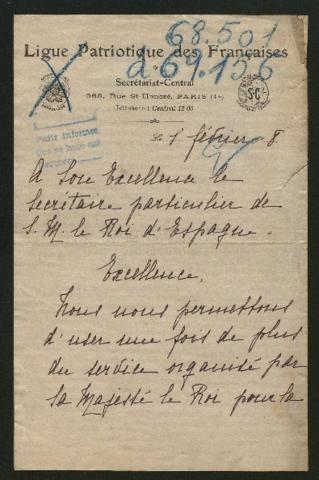 68.501
d 69.156
Ligue Patriotique des Françaises
Secrétariat-Central
368, Rue St-Honoré, PARIS (1er)
Téléphone : Central
Le 1 février 8.
A Son Excellence le
Secrétaire particulier de
S. M. le Roi d'Espagne.
Excellence,
Nous nous permettons
d'user une fois de plus
du service organisé par
Sa Majesté le Roi pour la